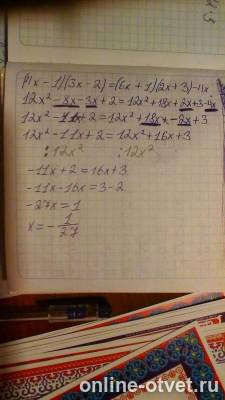 (4x-1)(3x-2)=(6x+1)(2x+3)-4x
12x²-8x-3x+2=12x²+18x+2x+3-4x
12x²-11x+2=12x²+18x-2x+3
12x²-11x+2=12x²+16x+3
:12x² :12x²
-11x+2=16x+3
-11x-16x=3-2
-27x=1
x=-1/27
online-otvet.ru